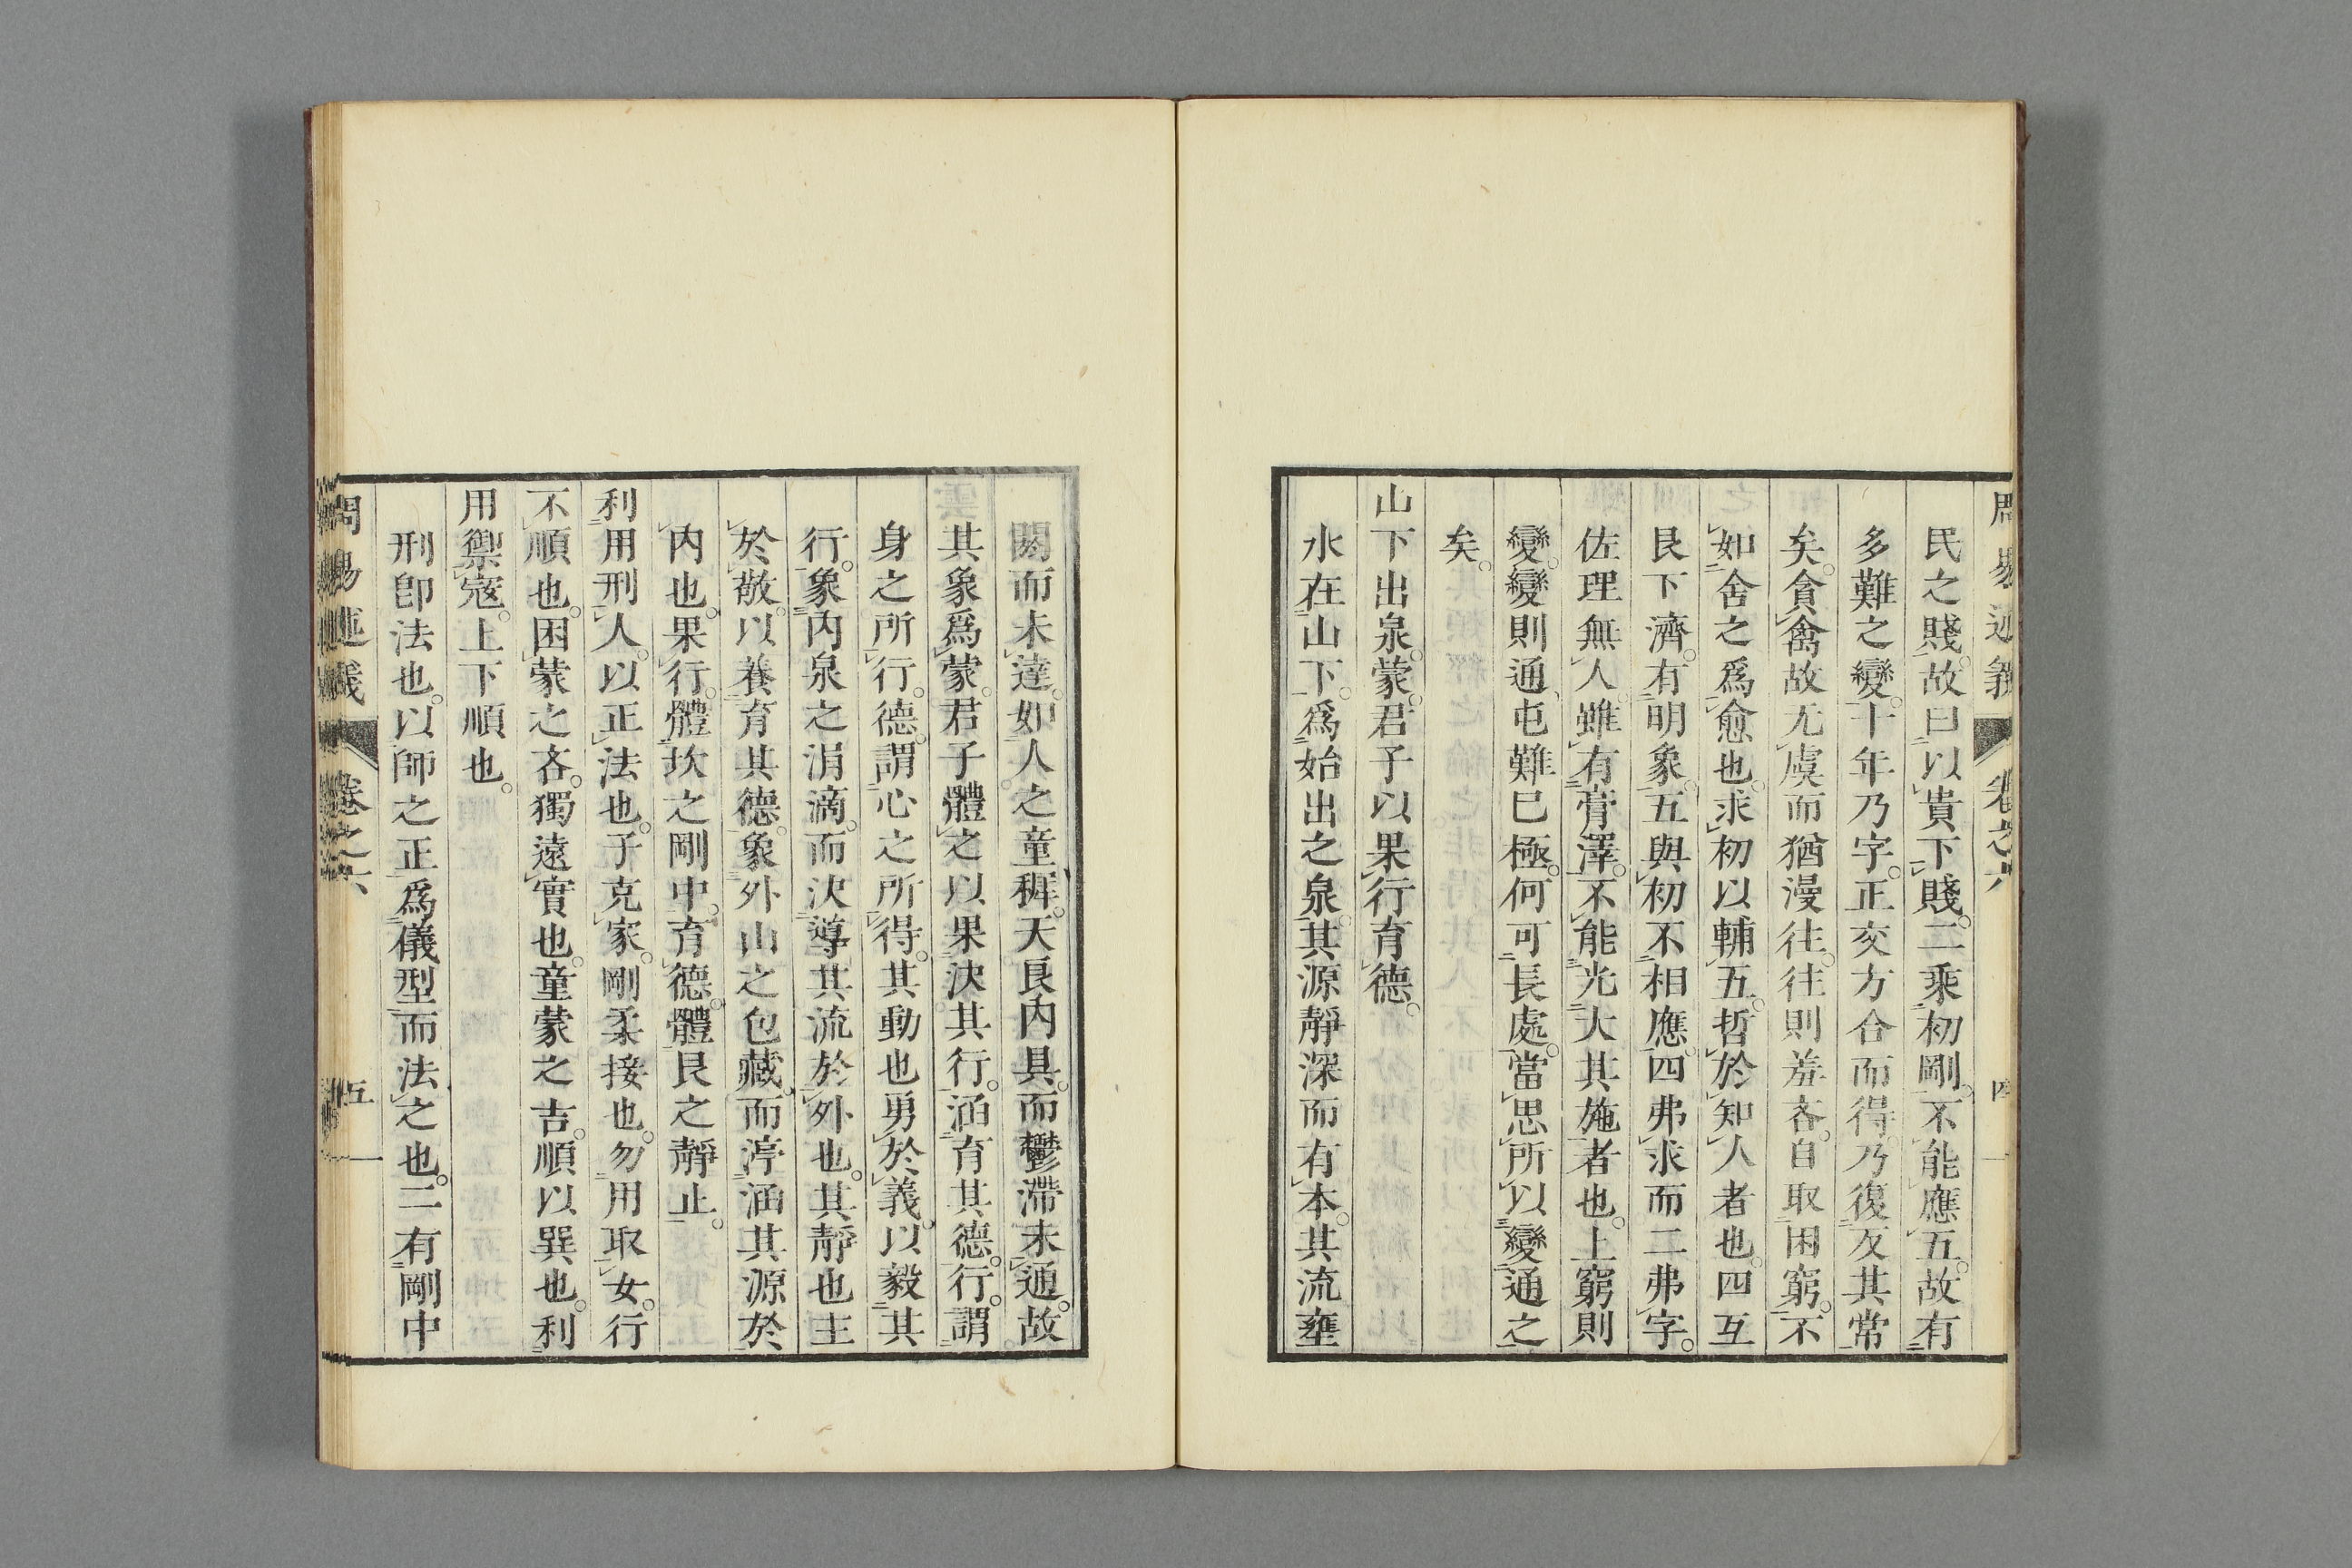 周易述義 卷之六 四
民之賤。故曰以貴下賤。二乘初剛。不能應五。故有
多難之變。十年乃字。正交方合而得。乃復反其常
矣。貪禽故无虞而猶漫往。往則羞吝。自取困窮。不
如舍之爲愈也。求初以輔五。哲於知人者也。四互
艮下濟。有明象。五與初不相應。四弗求而二弗字。
佐理無人。雖有膏澤。不能光大其施者也。上窮則
變。變則通、屯難已極。何可長處。當思所以變通之
矣。
山下出泉。蒙。君子以果行育德。
水在山下。爲始出之泉。其源靜深而有本。其流壅
閼而未達。如人之童穉。天良內具。而鬱滯未通。故
其象爲蒙。君子體之以果決其行。涵育其德。行。謂
身之所行。德。謂心之所得。其動也勇於義。以毅其
行。象內泉之涓滴。而決導其流於外也。其靜也主
於敬。以養育其德。象外山之包藏。而渟涵其源於
內也。果行。體坎之剛中。育德。體艮之靜止。
利用刑人。以正法也。子克家。剛柔接也。勿用取女。行
不順也。困蒙之吝。獨遠實也。童蒙之吉。順以巽也。利
用禦寇。上下順也。
刑卽法也。以師之正爲儀型而法之也。二有剛中
周易述義 卷之六 五